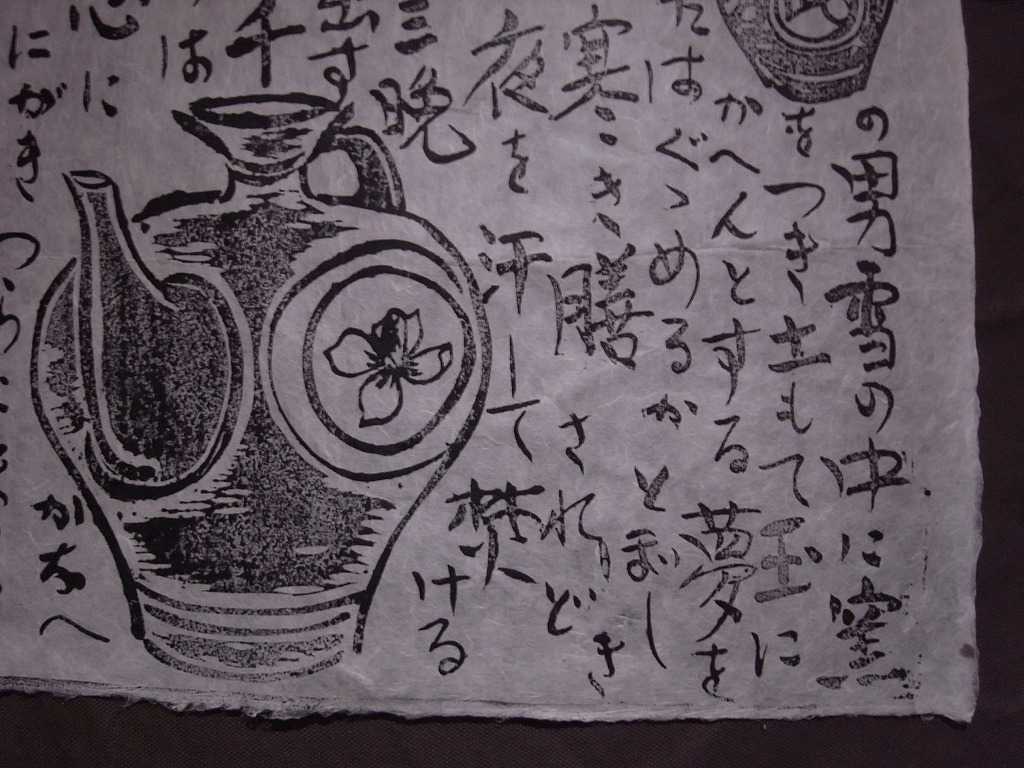 の男雪の中に窯
をつき土もて玉に
かへんとする夢を
たはぐゝめるか とぼし
寒き膳 されどき
夜を汗して焚ける
三晩
出す
千
は
心に
にがき
つらつら
かなへ